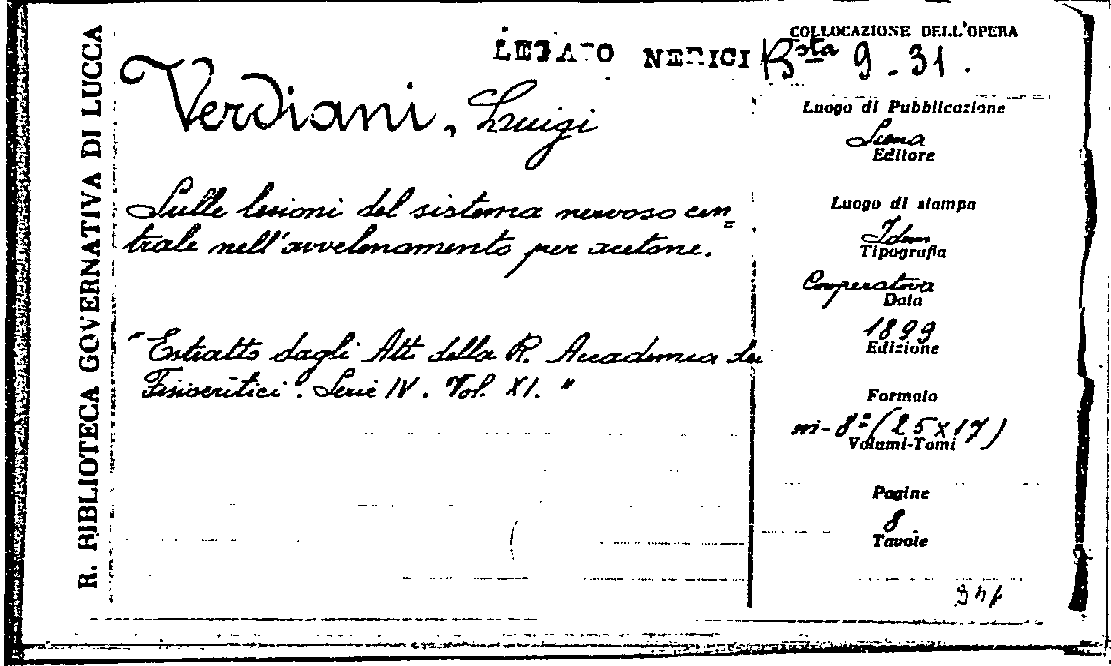 R. BIBLIOTECA GOVERNATIVA DI LUCCA
LEGATO NERICI
COLLOCAZIONE DELL'OPERA
Bsta 9-31.
Verdiani, Luigi
Sulle lesioni del sistema nervoso cen=
trale nell'avvelenamento per acetone.
"Estratto dagli Atti della R. Accademia dei
Fisiocritici". Serie IV. Vol. XI."
Luogo di Pubblicazione
Siena
Editore
Luogo di stampa
Idem
Tipografia
Cooperativa
Data
1899
Edizione
Formato
in-8º (25x17)
Volumi-Tomi
Pagine
8
Tavole